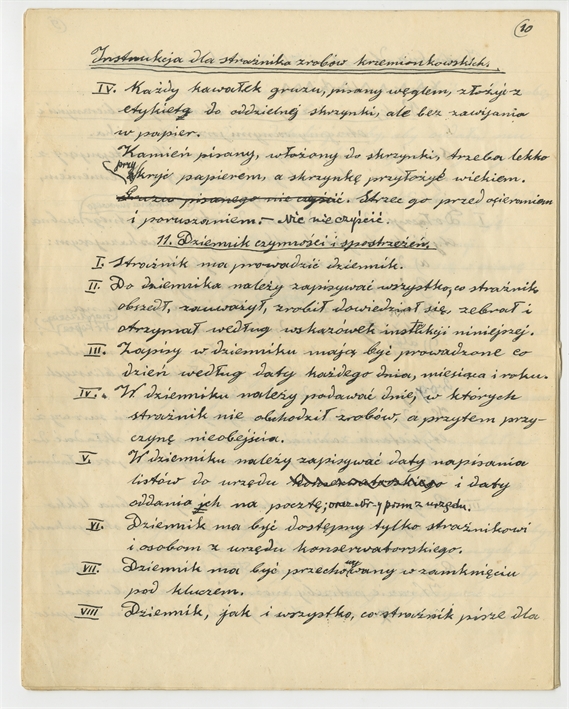 10
Instrukcja dla strażnika zrobów krzemionkowskich.
IV. Każdy kawałek gruzu, pisany węglem, złożyć z
etykietą do oddzielnej skrzynki, ale bez zawijania
w papier.
Kamień pisany, włożony do skrzynki, trzeba lekko
przykryć papierem, a skrzynkę przyłożyć wiekiem.
Gruzu pisanego nie czyścić. Strzec go przed ocieraniem
i poruszaniem. – Nic nie czyścić.
11. Dziennik czynności i spostrzeżeń.
I. Strażnik ma prowadzić dziennik.
II. Do dziennika należy zapisywać wszystko, co strażnik
obszedł, zauważył, zrobił dowiedział się, zebrał i
otrzymał według wskazówek instrukcji niniejszej.
III. Zapisy w dzienniku mają być prowadzone co
dzień według daty każdego dnia, miesiąca i roku.
IV. W dzienniku należy podawać dnie, w których
strażnik nie obchodził zrobów, a przytem przy-
czynę nieobejścia.
V. W dzienniku należy zapisywać daty napisania
listów do urzędu konserwatorskiego i daty
oddania ich na pocztę; oraz otrzym z urzędu.
VI. Dziennik ma być dostępny tylko strażnikowi
i osobom z urzędu konserwatorskiego.
VII. Dziennik ma być przechowywany w zamknięciu
pod kluczem.
VIII Dziennik, jak i wszystko, co strażnik pisze dla